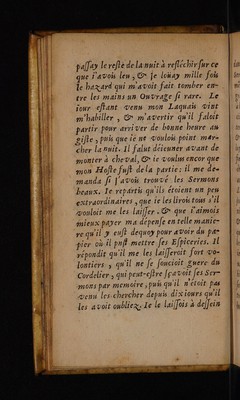 passay le reste de la nuit à reflêchir sur ce
que i'avois leu, & je loüay mille fois
le hazard qui m'avoit fait tomber en-
tre les mains un Ouvrage si rare. Le
iour estant venu mon Laquais vint
m'habiller, & m'avertir qu'il faloit
partir pour arriver de bonne heure au
giste, puis que ie ne voulois point mar-
cher la nuit. Il falut déieuner avant de
monter à cheval, & ie voulus encor que
mon Hoste fust de la partie: il me de-
manda si j'avois trouvé les Sermons
beaux. Ie repartis qu'ils étoient un peu
extraordinaires, que ie les lirois tous s'il
vouloit me les laisser, & que i'aimois
mieux payer ma dépense en telle manie-
re qu'il y eust dequoy pour avoir du pa-
pier où il pust mettre ses Espiceries. Il
répondit qu'il me les laisseroit fort vo-
lontiers, qu'il ne se soucioit guere du
Cordelier, qui peut-estre sçavoit ses Ser-
mons par memoire, puis qu'il n'étoit pas
venu les chercher depuis dix iours qu'il
les avoit oubliez. Ie le laissois à dessein